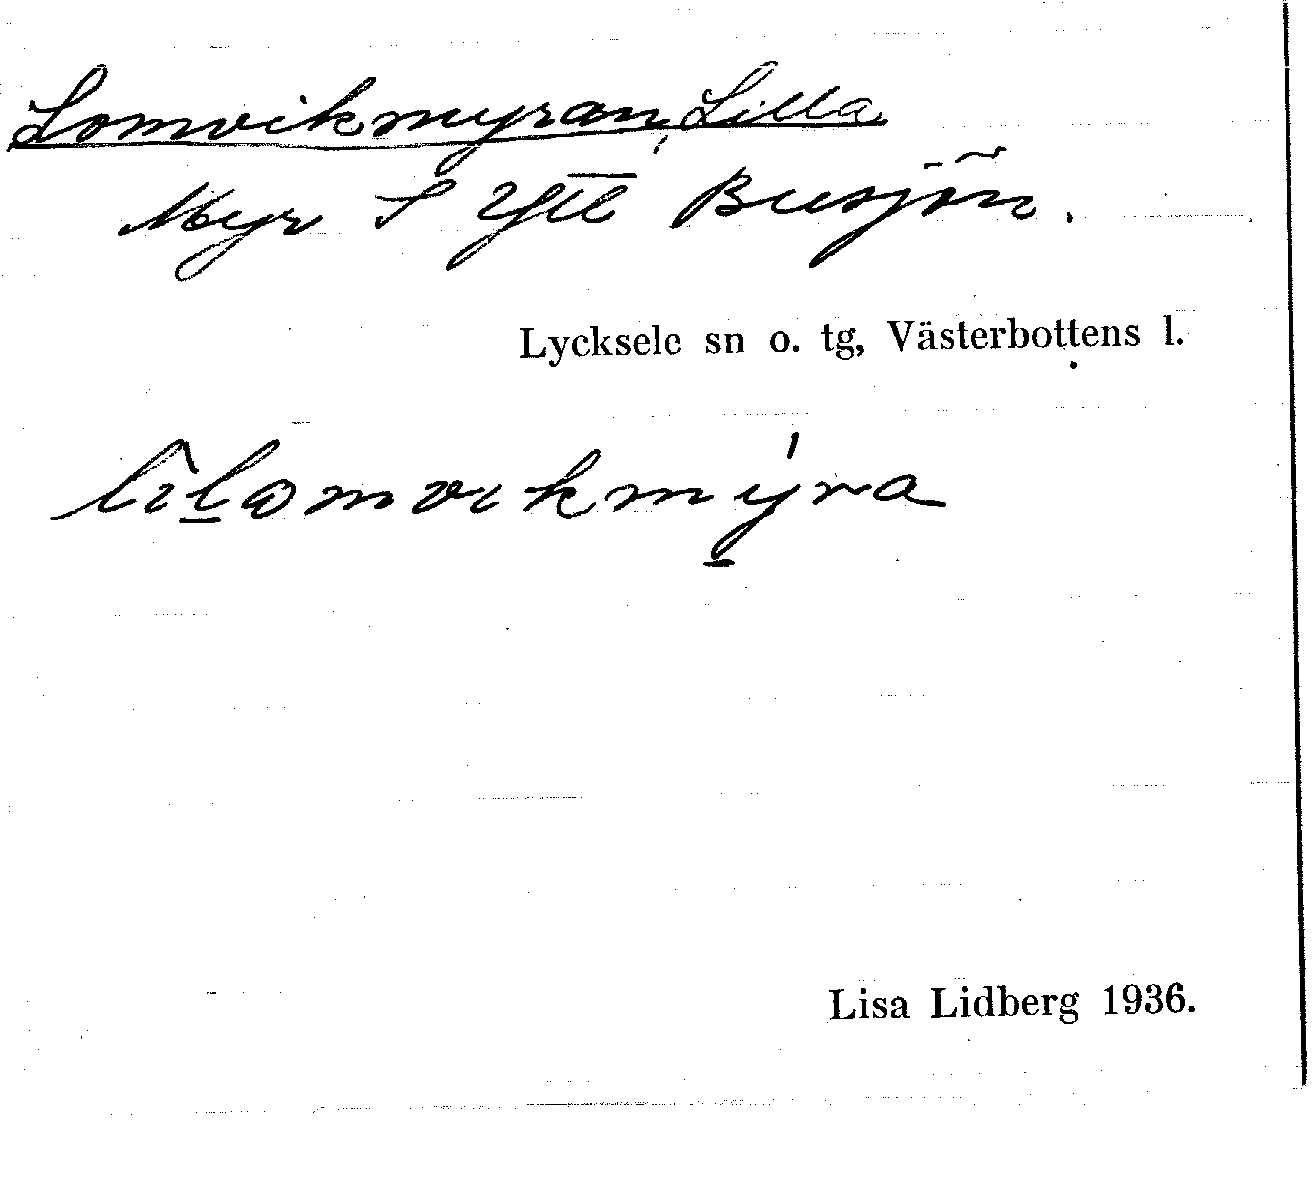 Lomvikmyran, Lilla
Myr S Ytt Busjön.
Lycksele sn o. tg, Västerbottens l.
lìlomvikmýra
Lisa Lidberg 1936.